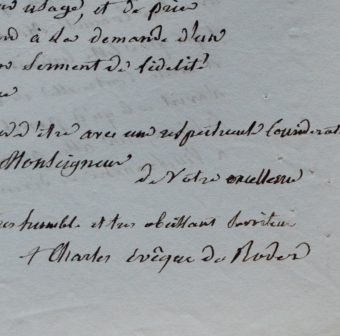 usage, et de prie
à la demande d'un
serment de fidelité
d'être avec un respectueux
Monseigneur
de Votre excellence
humble et tres obeissant serviteur
† Charles évêque de Rodez